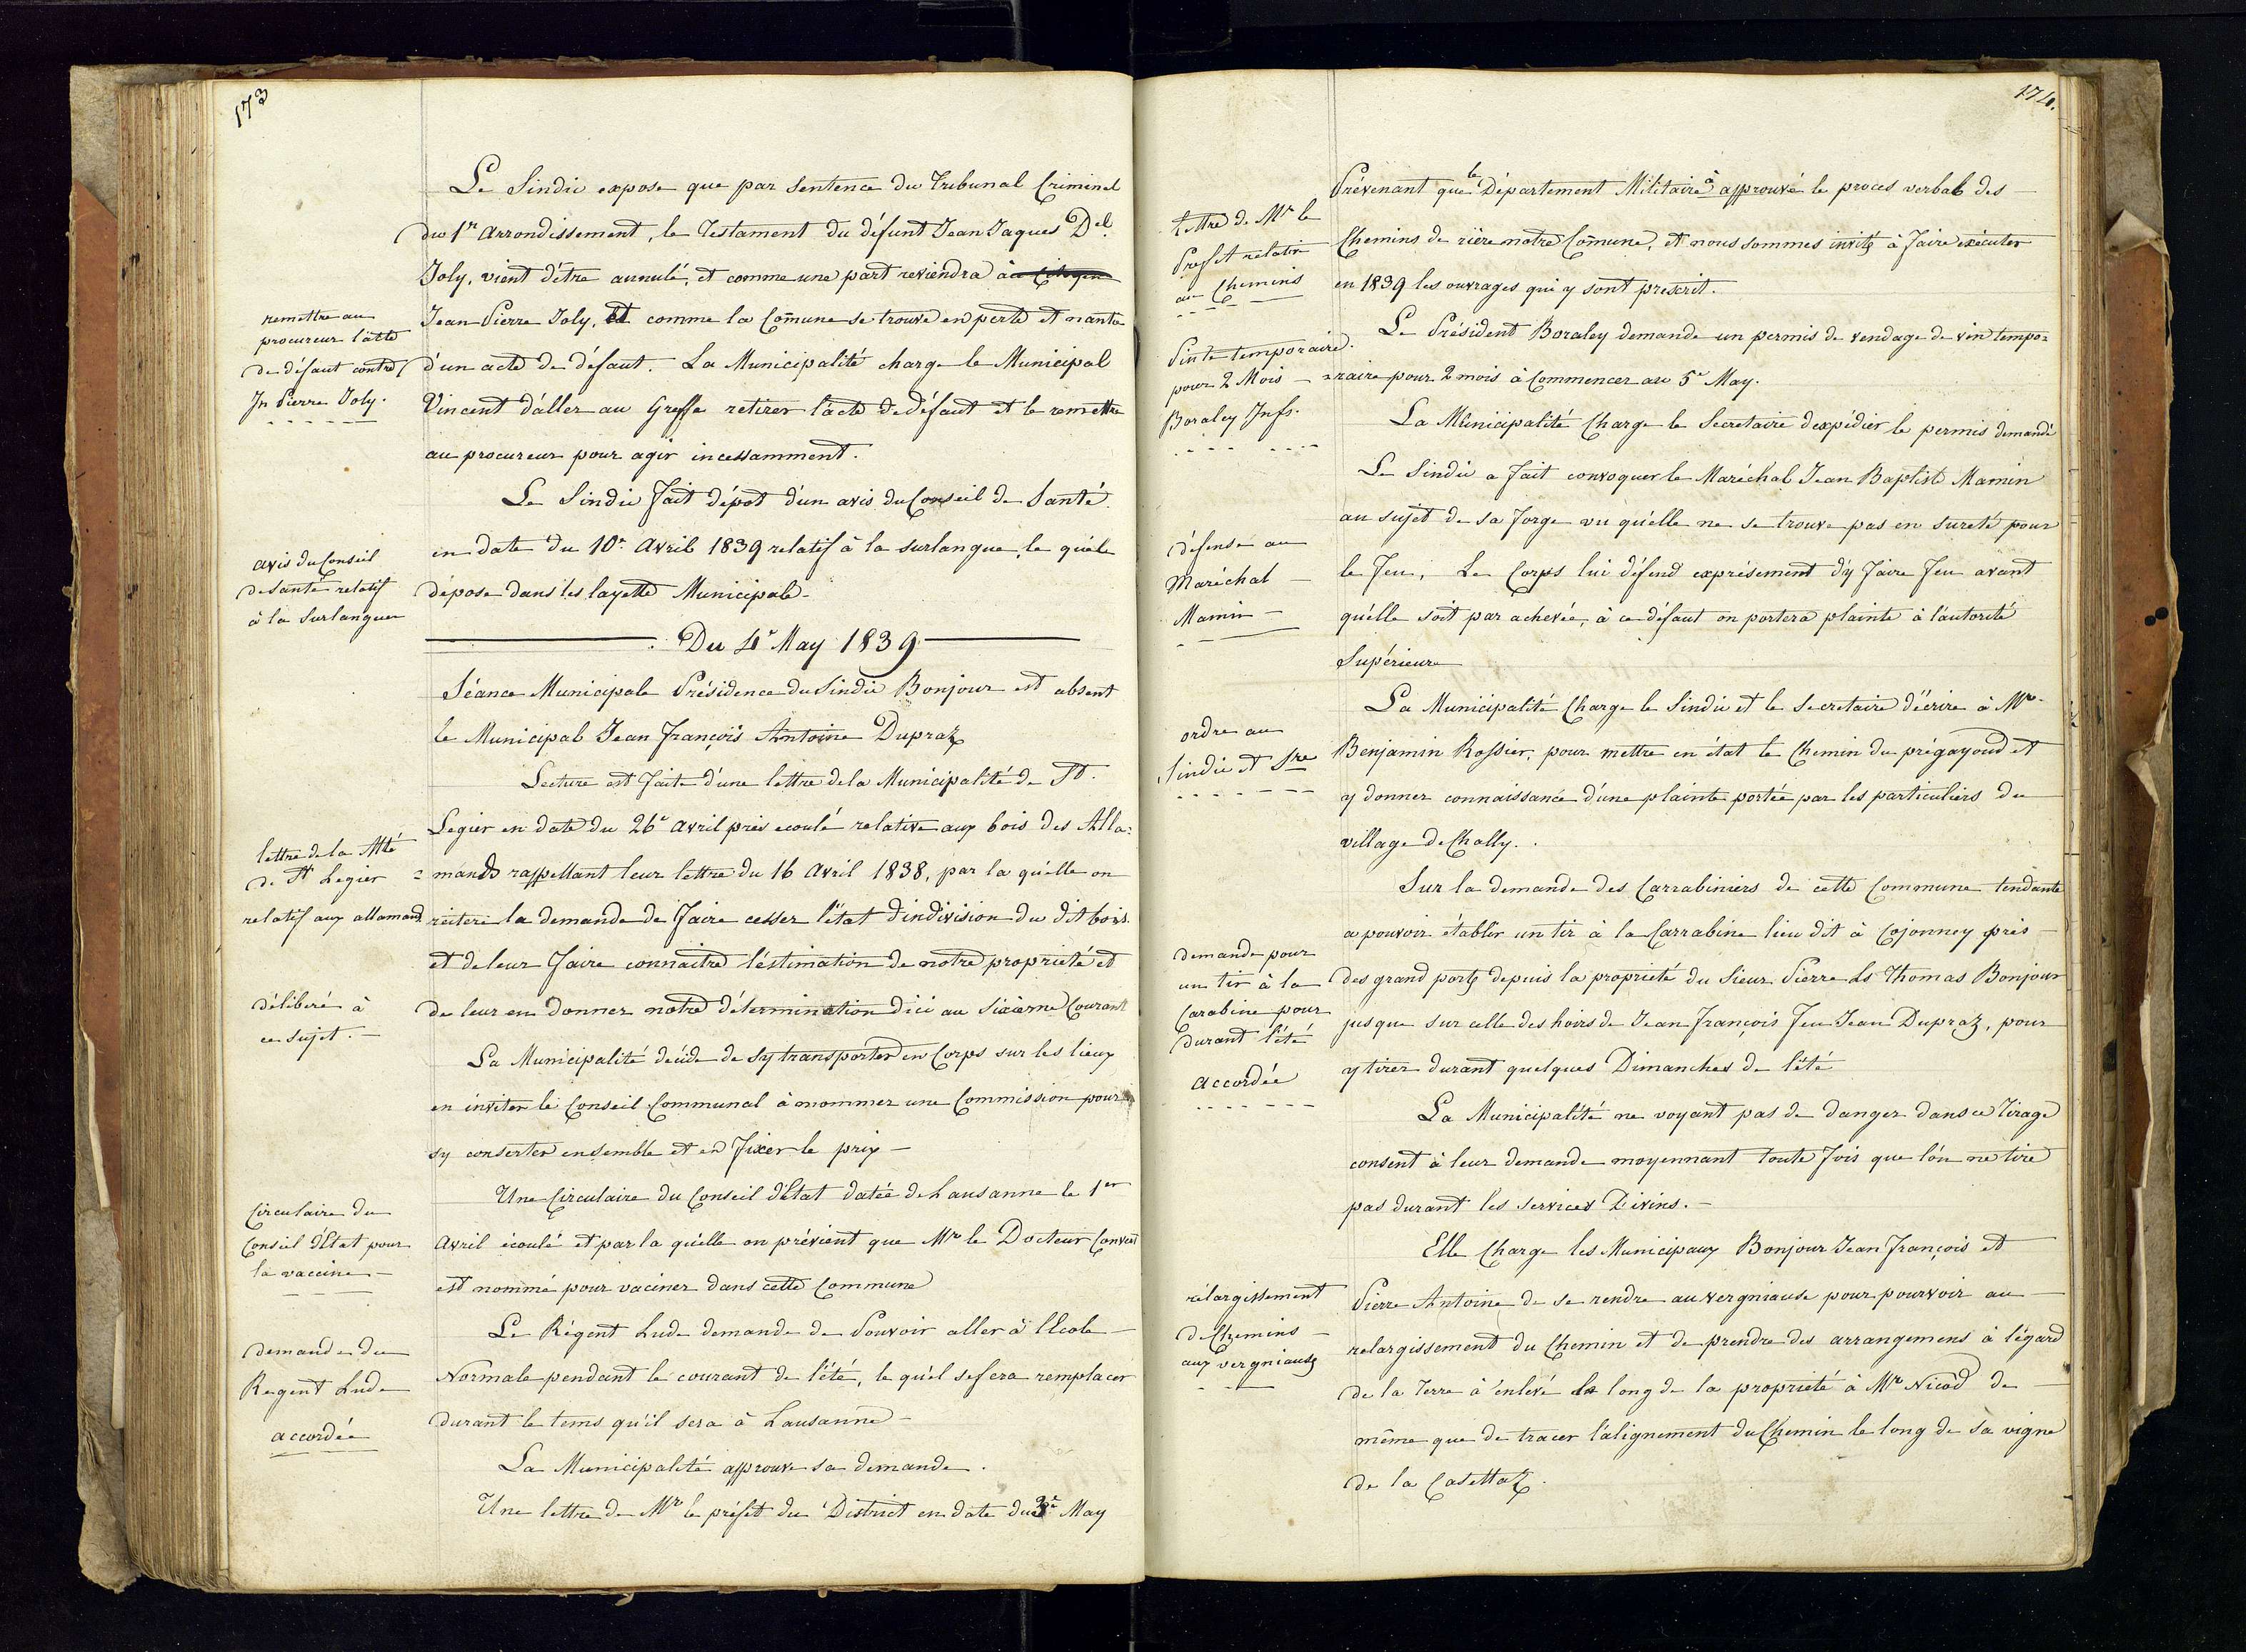 173
Le Sindic expose que par sentence du Tribunal Criminel
du 1r arrondissement, le Testament du défunt Jean Jaques Del
Joly, vient d'être annulé, et comme une part reviendra à
remettre au
procureur l'acte
de défaut contre
Jn Pierre Joly.
Jean Pierre Joly, et comme la Comune se trouve en perte et nantie
d'un acte de défaut. La Municipalité charge le Municipal
Vincent d'aller au Greffe retirer l'acte de défaut et le remettre
au procureur pour agir incessamment.
Le Sindic fait dépot d'un avis du Conseil de Santé
avis du Conseil
de Santé relatif
à la Surlangue
en date du 10e Avril 1839 relatif à la surlangue, le quel
dépose dans les layette Municipale
Du 4e May 1839
Séance Municipale Présidence du Sindic Bonjour est absent
le Municipal Jean François Antoine Dupraz
Lecture est faite d'une lettre de la Municipalité de St.
Legier en date du 26e avril près ecoulé relative aux bois des Alla=
lettre de la Mté
de St Legier
relatif aux allamand
=mands rappellant leur lettre du 16 Avril 1838, par la quelle on
réitere la demande de faire cesser l'état d'indivision du dit bois
et de leur faire connaitre l'éstimation de notre proprieté et
délibéré à
ce sujet.
de leur en donner notre détermination d'ici au Courant
La Municipalité decide de sy transporter en Corps sur les lieux
en inviter le Conseil Communal à nommer une Commission pour
sy conserter ensemble et en fixer le prix
Une Circulaire du Conseil d'Etat datée de Lausanne le 1er
Circulaire du
Conseil d'Etat pour
la vaccine
Avril écoulé et par la quelle on prévient que Mr le Docteur
est nommé pour vaciner dans cette Commune
Le Régent Lude demande de Pouvoir aller à l'Ecole
demande du
Regent Lude
accordée
Normale pendant le courant de l'été, le quel se fera remplacer
durant le tems qu'il sera à Lausanne
La Municipalité approuve sa demande.
Une lettre de Mr le préfet du District en date du 3e May
174.
Prévenant que le Département Militaire à approuvé le proces verbal des
lettre de Mr le
Prefet relatir
au Chemins
Chemins de rière notre Comune, et nous sommes invités à faire exécuter
en 1839 les ouvrages qui y sont prescrit.
Le Président Boraley demande un permis de vendage de vin tempo=
Pinte temporaire.
pour 2 Mois
Boraley
=raire pour 2 mois à Commencer au 5e May.
La Municipalité Charge le Secretaire d'expédier le permis demandé
Le Sindic a fait convoquer le Maréchal Jean Baptiste Mamin
au sujet de sa forge vu qu'elle ne se trouve pas en sureté pour
défense au
Maréchal
Mamin
le feu, Le Corps lui défend exprésement d'y faire feu avant
qu'elle soit par achevée, à ce défaut on portera plainte à l'autorité
Supérieure
La Municipalité Charge le Sindic et le secretaire d'écrire à Mr
ordre au
Sindic et Sre
Benjamin Rossier, pour mettre en état le Chemin du prégayoud et
y donner connaissance d'une plainte portée par les particuliers du
village de Chally.
Sur la demande des Carrabiniers de cette Commune tendante
a pouvoir établir un tir à la Carrabine lieu dit à Cojonney près
demande pour
un tir à la
Carabine pour
durant l'été
accordée
des grand ports depuis la proprieté du Sieur Pierre Ls Thomas Bonjour
jusque sur celle des hoirs de Jean François feu Jean Dupraz, pour
y tirer durant quelques Dimanches de l'été
La Municipalité ne voyant pas de danger dans ce Tirage
consent à leur demande moyennant toute fois que l'on ne tire
pas durant les services Divins.
Elle Charge les Municipaux Bonjour Jean François et
rélargissement
de Chemins
aux vergniause
Pierre Antoine de se rendre au vergniause pour pourvoir au
relargissement du Chemin et de prendre des arrangemens à l'égard
de la Terre à enlevé le long de la proprieté à Mr Nicod de
même que de tracer l'alignement du Chemin le long de sa vigne
de la Casettaz.